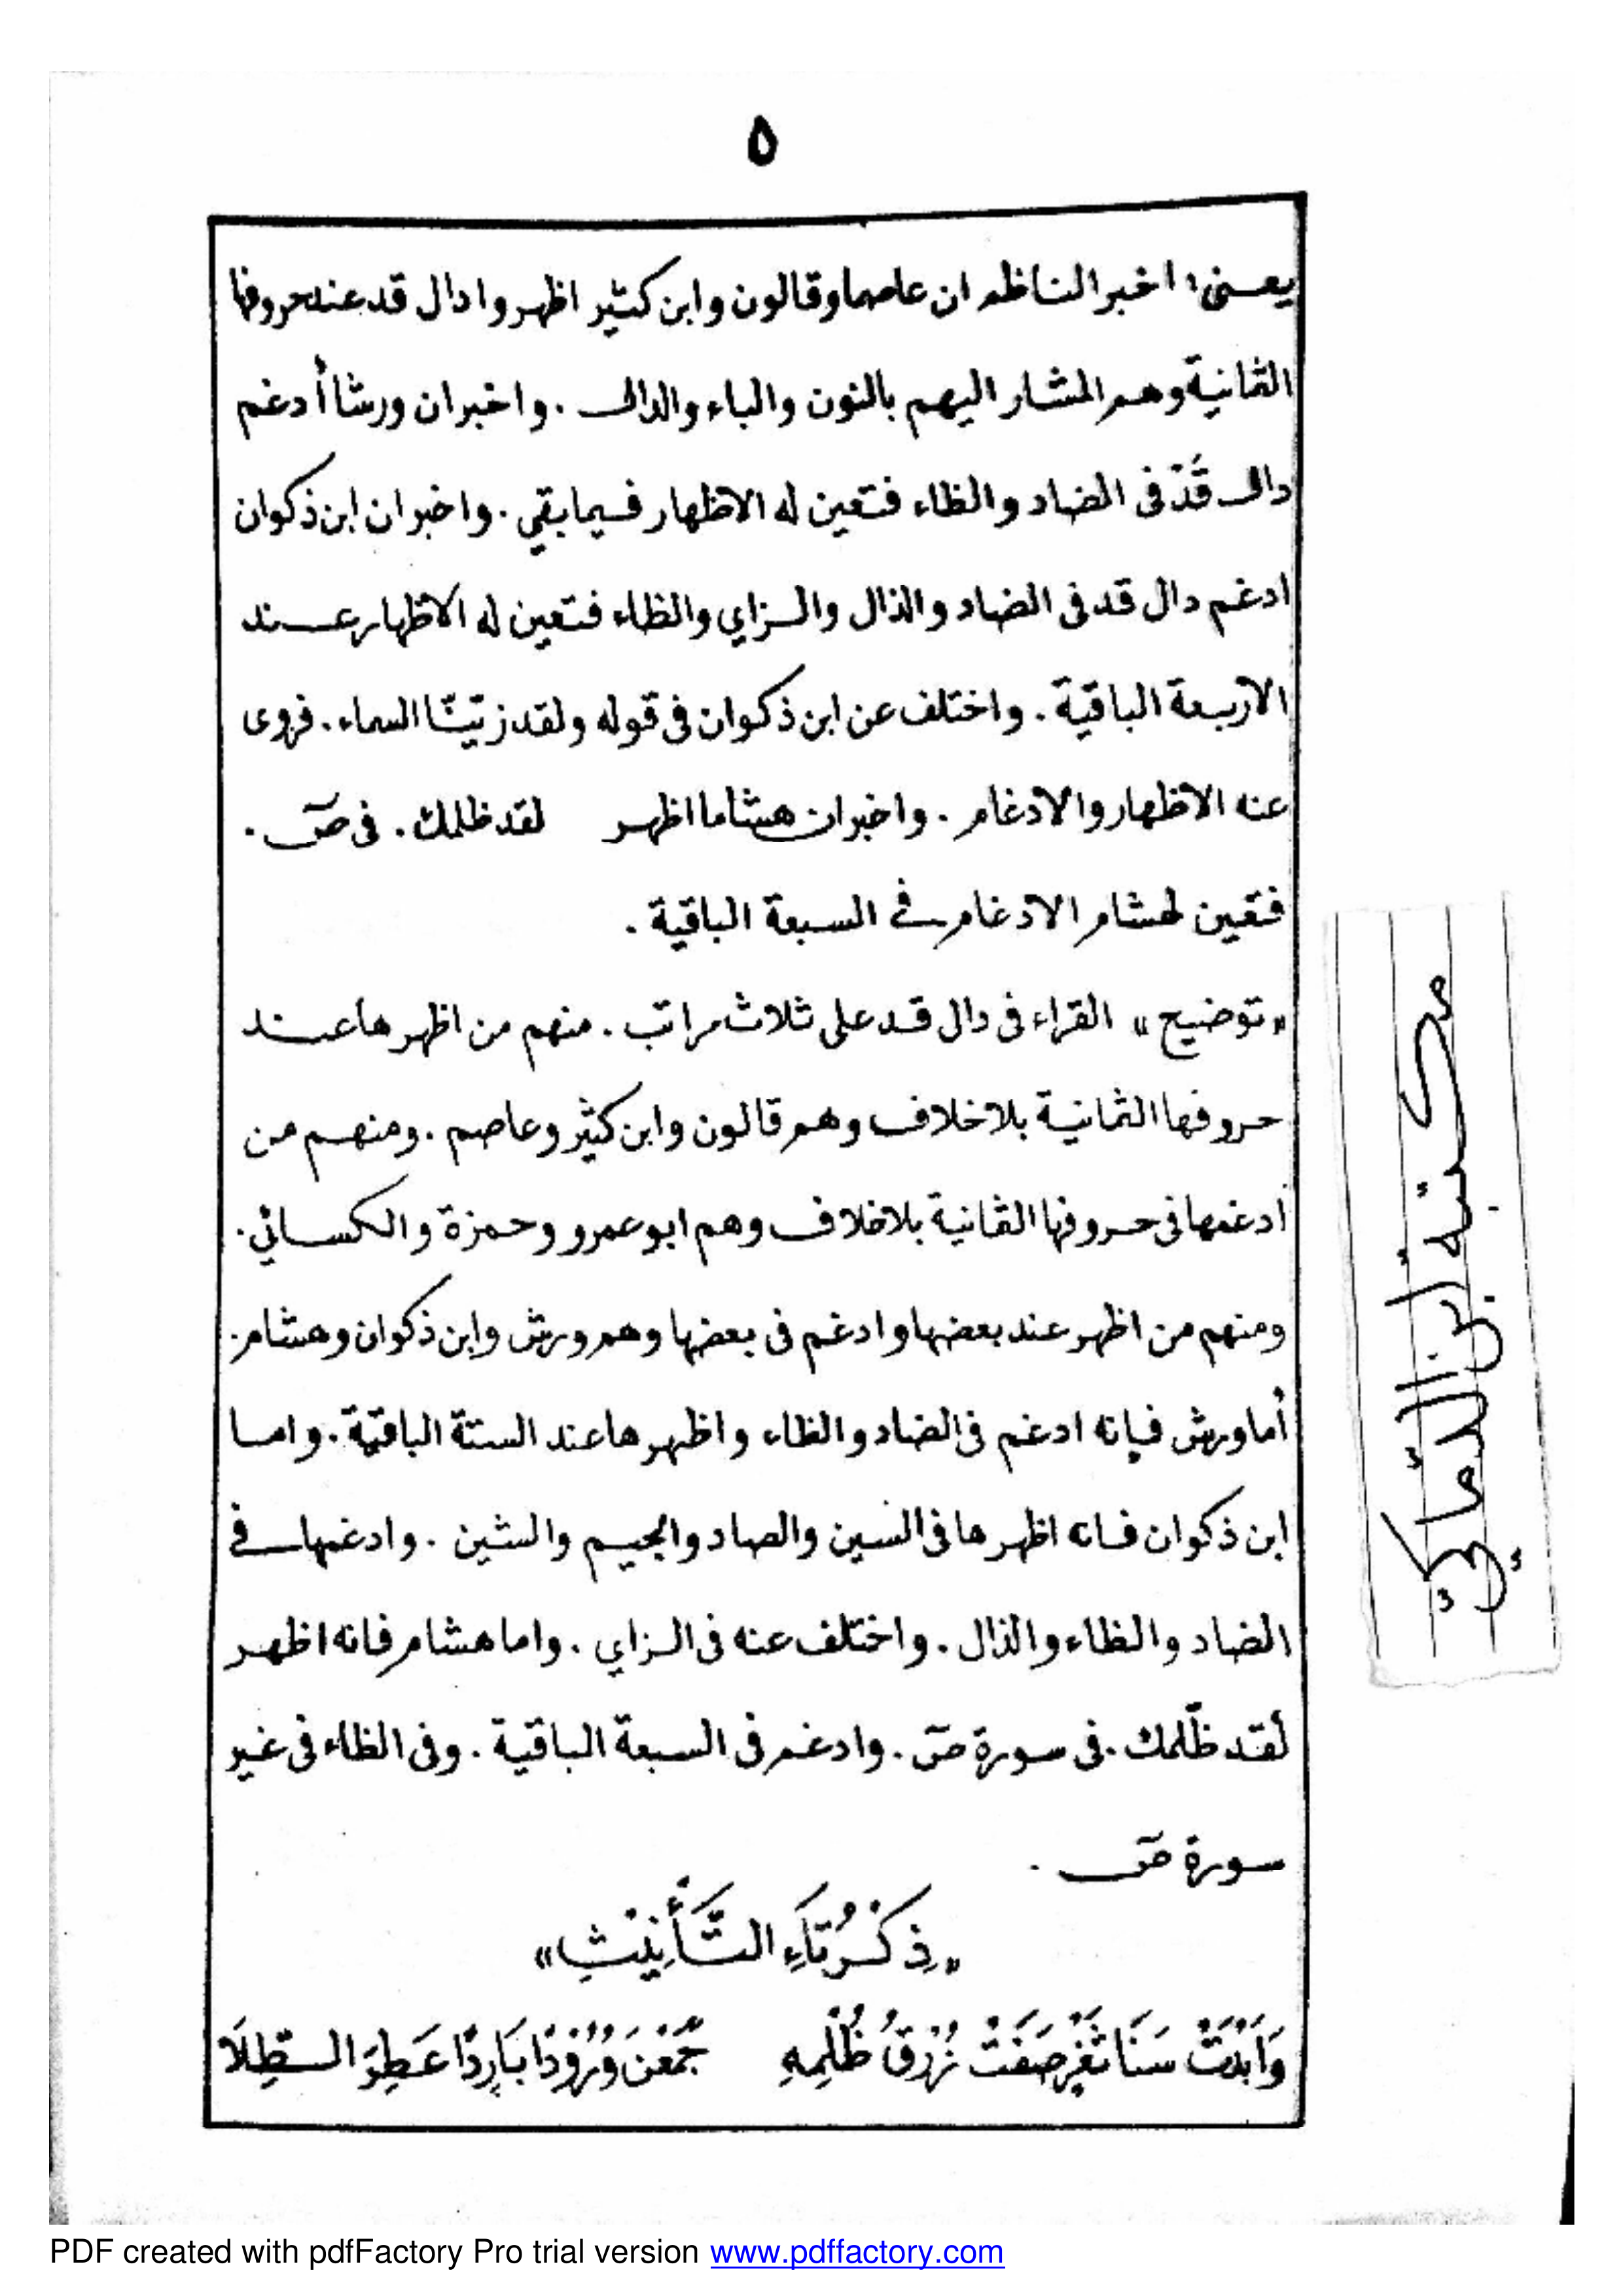 ٥
يعنى، اخبر الناظم ان عاصما وقالون وابن كثير اظهروا دال قد عند حروفها
الثمانية وهم المشار اليهم بالنون والباء والدال . واخبر ان ورشا أدغم
دال قَدْ فى الضاد والظاء فتعين له الاظهار فيما بقي . واخبر ان ابن ذكوان
ادغم دال قد فى الضاد والذال والزاي والظاء فتعين له الاظهار عند
الاربعة الباقية . واختلف عن ابن ذكوان فى قوله ولقد زيّنّا السماء . فروى
عنه الاظهار والادغام . واخبر ان هشاما اظهر لقد ظلمك . فى صٓ .
فتعين لهشام الادغام فى السبعة الباقية .
«توضيح» القراء فى دال قد على ثلاث مراتب . منهم من اظهرها عند
حروفها الثمانية بلا خلاف وهم قالون وابن كثير وعاصم . ومنهم من
ادغمها فى حروفها الثمانية بلا خلاف وهم ابو عمرو وحمزة والكسائي .
ومنهم من اظهر عند بعضها وادغم فى بعضها وهم ورش وابن ذكوان وهشام .
أما ورش فإنه ادغم فى الضاد والظاء واظهرها عند الستة الباقية . واما
ابن ذكوان فانه اظهرها فى السين والصاد والجيم والشين . وادغمها فى
الضاد والظاء والذال . واختلف عنه فى الزاي . واما هشام فانه اظهر
لَقد ظَّلمك . فى سورة صٓ . وادغم فى السبعة الباقية . وفى الظاء فى غير
سورة صٓ .
«ذِكْرُ تَاءِ التَّأْنِيْثِ»
وَاَبْدَتْ سَنَا ثَغْرٍ صَفَتْ زُرْقُ ظُلْمِهِ جَمَعْنَ وُرُوْدًا بَارِدًا عَطِرَ الطِّلَا
مكتبة ابن الدّماكيّ
PDF created with pdfFactory Pro trial version www.pdffactory.com